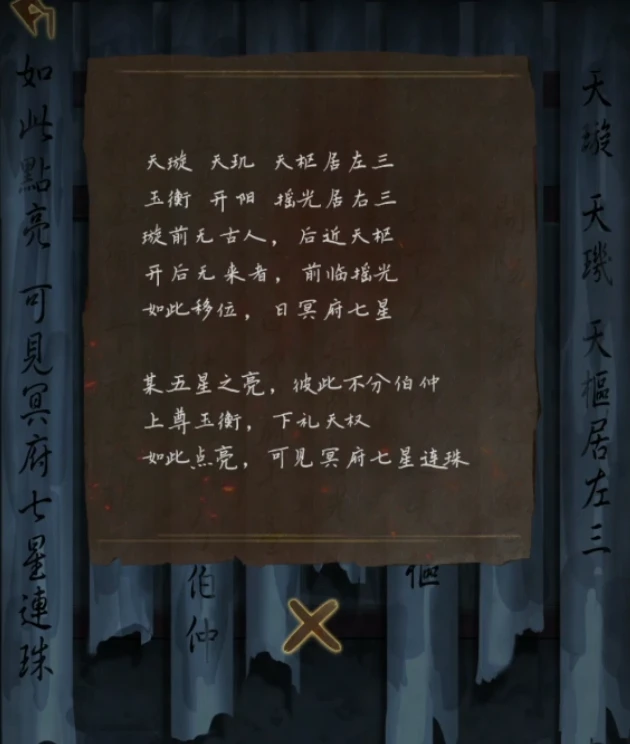 天璇 天玑 天枢居左三
玉衡 开阳 摇光居右三
璇前无古人，后近天枢
开后无来者，前临摇光
如此移位，日冥府七星
某五星之亮，彼此不分伯仲
上尊玉衡，下礼天权
如此点亮，可见冥府七星连珠
天璇 天璣 天樞居左三
伯仲
如此點亮 可見冥府七星連珠